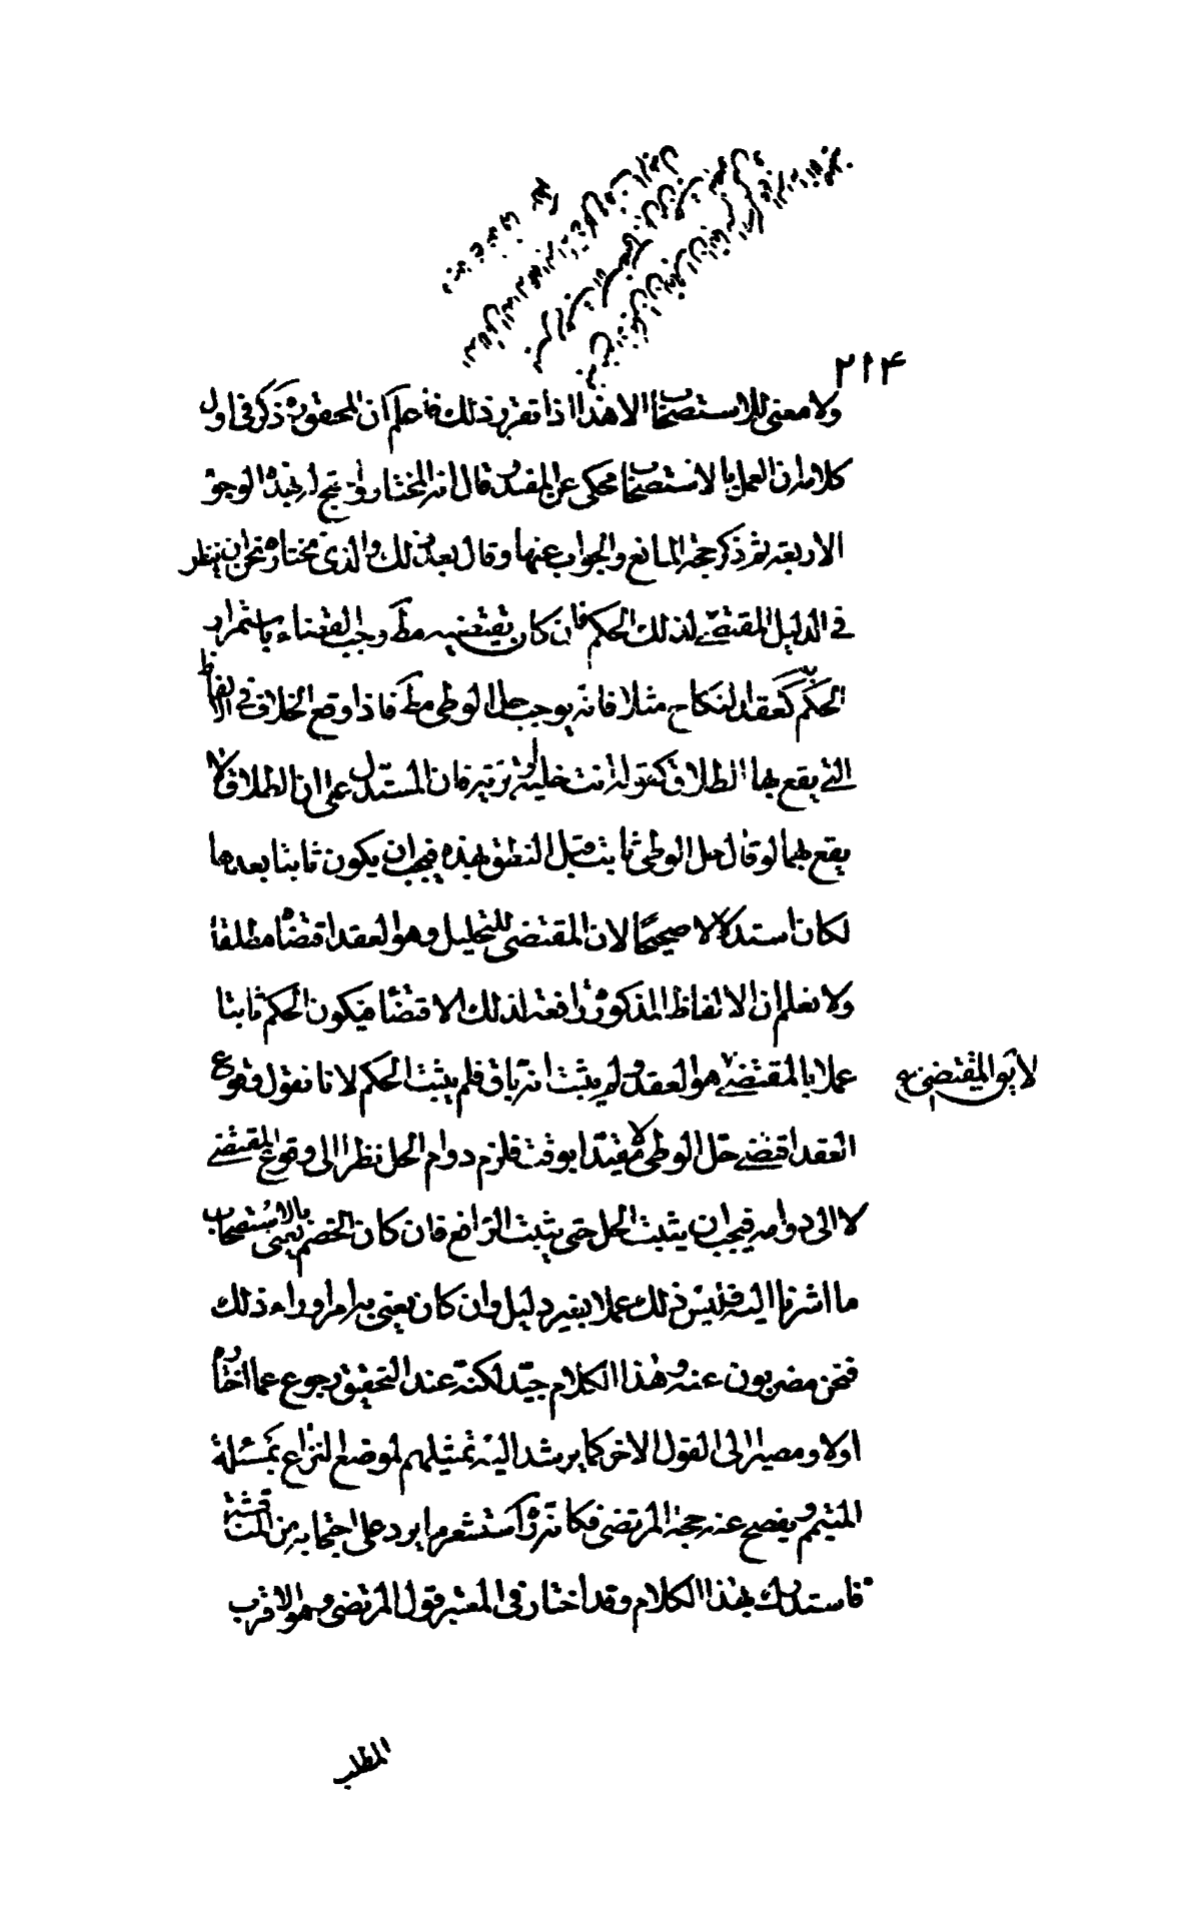 ٢١۴
ولا معنى للاستصحاب الا هذا اذا تقرر ذلك فاعلم ان المحقق ره ذكر فى اول
كلامه ان العمل بالاستصحاب محكى عن المفيد وقال انه المختار واحتج له بهذه الوجوه
الاربعة ثم ذكر حجة المانع والجواب عنها وقال بعد ذلك والذى نختاره نحن ان ينظر
في الدليل المقتضى لذلك الحكم فان كان يقتضيه مط وجب القضاء باستمرار
الحكم كعقد النكاح مثلا فانه يوجب حل الوطى مط فاذا وقع الخلاف في الالفاظ
التى يقع بها الطلاق كقوله انت خلية او برية فان المستدل على ان الطلاق لا
يقع بهما لو قال حل الوطى ثابت قبل النطق بهذه فيجب ان يكون ثابتا بعدها
لكان استدلالا صحيحا لان المقتضى للتحليل وهو العقد اقتضاه مطلقا
ولا نعلم ان الالفاظ المذكورة رافعة لذلك الاقتضاء فيكون الحكم ثابتا
عملا بالمقتضى لا يق المقتضى هو العقد ولم يثبت انه باق فلم يثبت الحكم لانا نقول وقوع
العقد اقتضى حل الوطى لا مقيدا بوقت فلزم دوام الحل نظرا الى وقوع المقتضى
لا الى دوامه فيجب ان يثبت الحل حتى يثبت الرافع فان كان الخصم يعنى بالاستصحاب
ما اشرنا اليه فليس ذلك عملا بغير دليل وان كان يعنى به امرا وراء ذلك
فنحن مضربون عنه وهذا الكلام جيد لكنه عند التحقيق رجوع عما اختاره
اولا ومصير الى القول الاخر كما يرشد اليه تمثيلهم لموضع النزاع بمسئلة
المتيمم ويفصح عنه حجة المرتضى فكانه ره استشعر ما يرد على احتجاجه من المناقشة
فاستدرك بهذا الكلام وقد اختار فى المعتبر قول المرتضى وهو الاقرب
المطلب